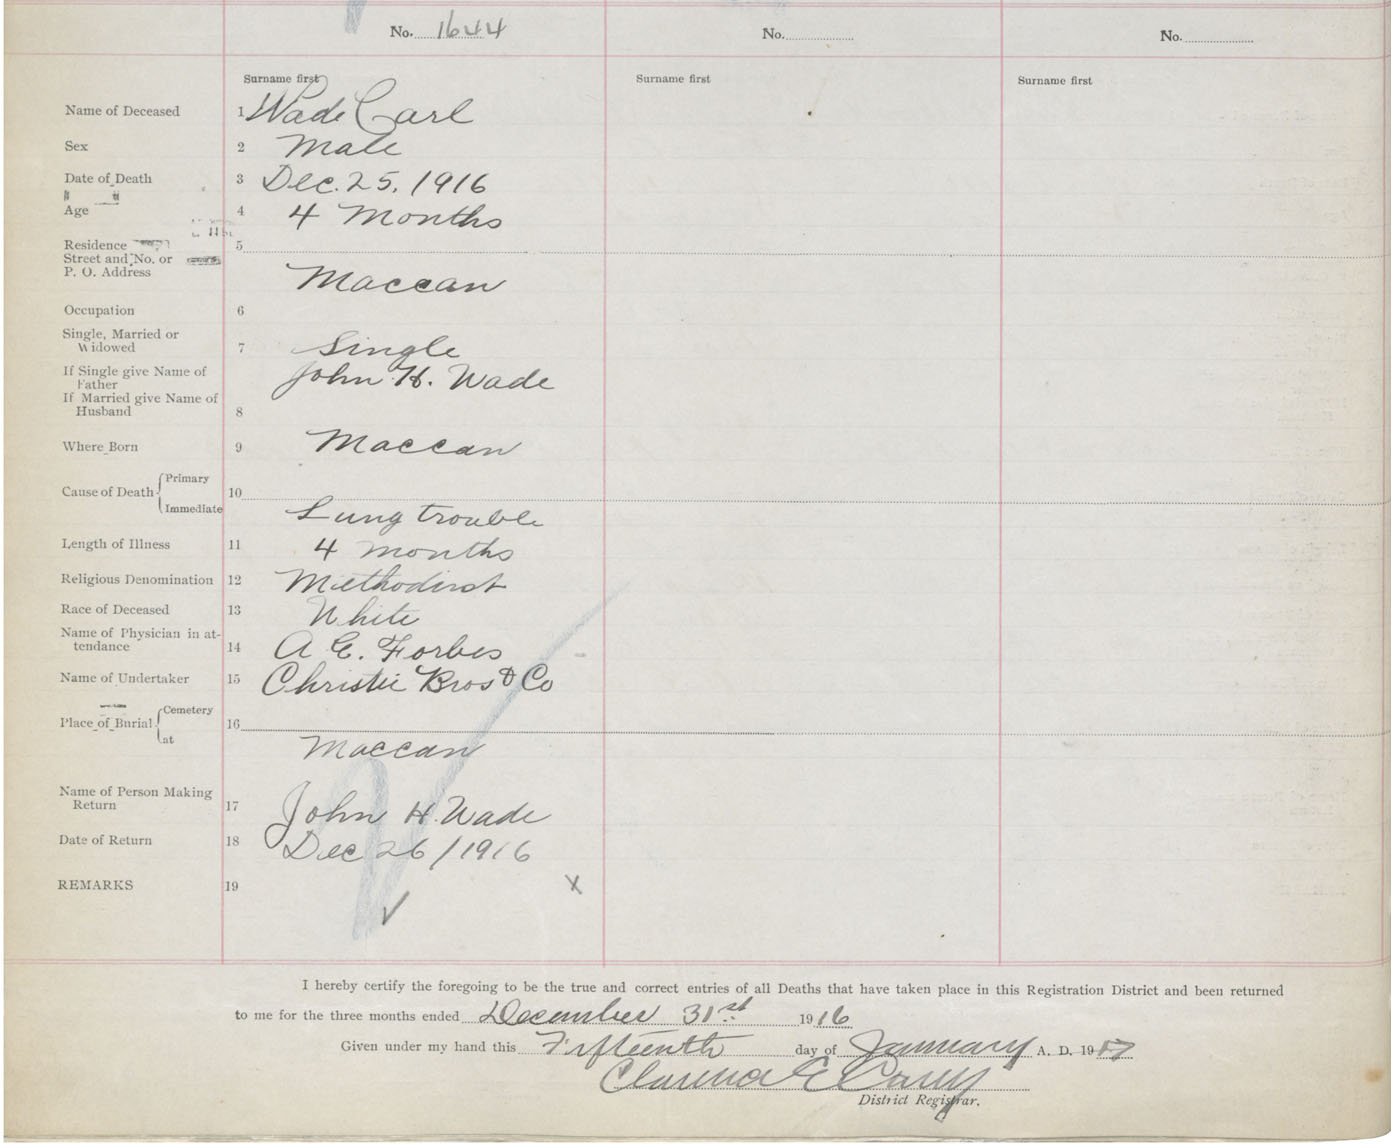 No. 1644 No. No.
Surname first Surname first Surname first
Name of Deceased 1 Wade Carl
Sex 2 Male
Date of Death 3 Dec. 25, 1916
Age 4 4 Months
Residence 5
Street and No. or
P. O. Address Maccan
Occupation 6
Single, Married or
Widowed 7 Single
If Single give Name of
Father John H. Wade
If Married give Name of
Husband 8
Where Born 9 Maccan
Primary
Cause of Death 10
Immediate Lung trouble
Length of Illness 11 4 months
Religious Denomination 12 Methodist
Race of Deceased 13 White
Name of Physician in at-
tendance 14 A. E. Forbes
Name of Undertaker 15 Christie Bros & Co
Cemetery
Place of Burial 16
at Maccan
Name of Person Making
Return 17 John H. Wade
Date of Return 18 Dec 26/1916
REMARKS 19 x
I hereby certify the foregoing to be the true and correct entries of all Deaths that have taken place in this Registration District and been returned
to me for the three months ended December 31st 1916
Given under my hand this Fifteenth day of January A. D. 1917
Clarence E
District Registrar.